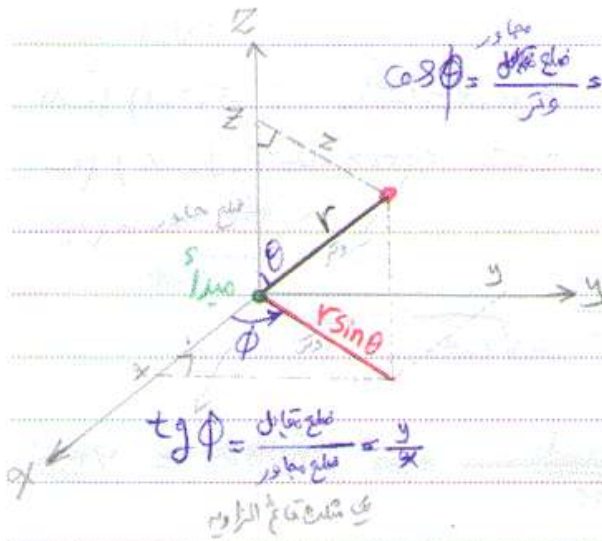 Z
مجاور
cosθ = ضلع / وتر =
Z
z
ضلع مجاور
r
وتر
θ
مبدأ
y
y
r sinθ
وتر
φ
x
tgφ = ضلع مقابل / ضلع مجاور = y/x
x
یک مثلث قائم الزاویه